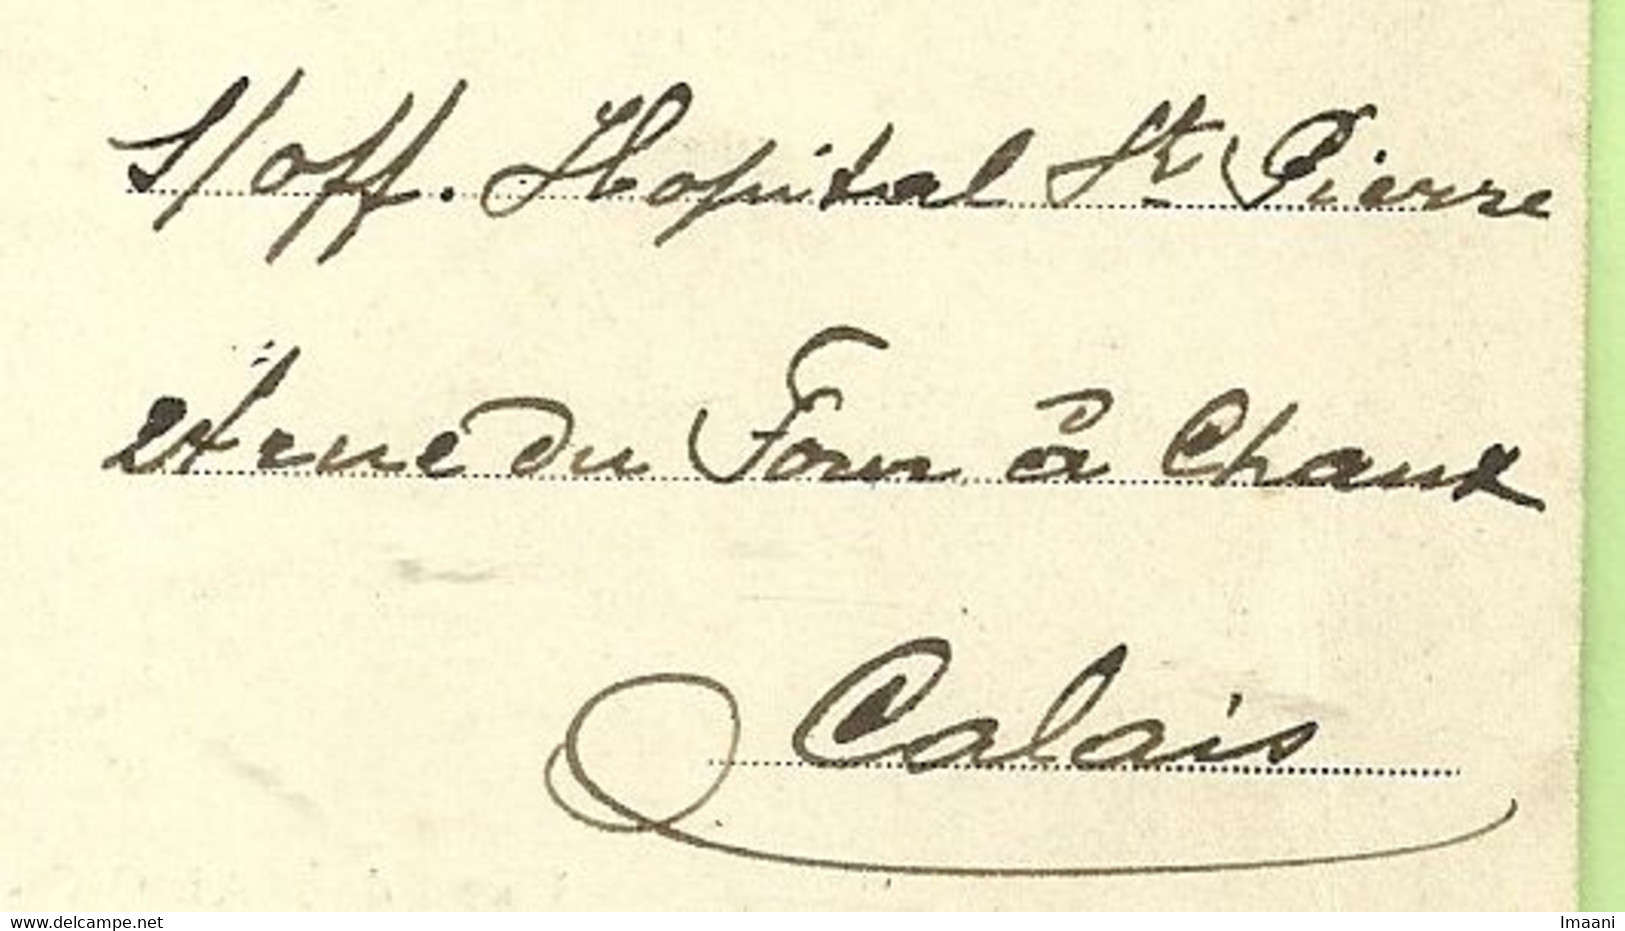 S/off. Hopital St Pierre
24 rue du Four à Chaux
Calais
delcampe.net
Imaani